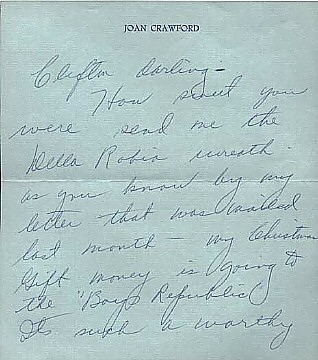 JOAN CRAWFORD
Clifton darling -
How sweet you
were send me the
Della Robia wreath -
as you know by my
letter that was mailed
last month - my Christmas
Gift money is going to
the "Boys Republic"
Its such a worthy